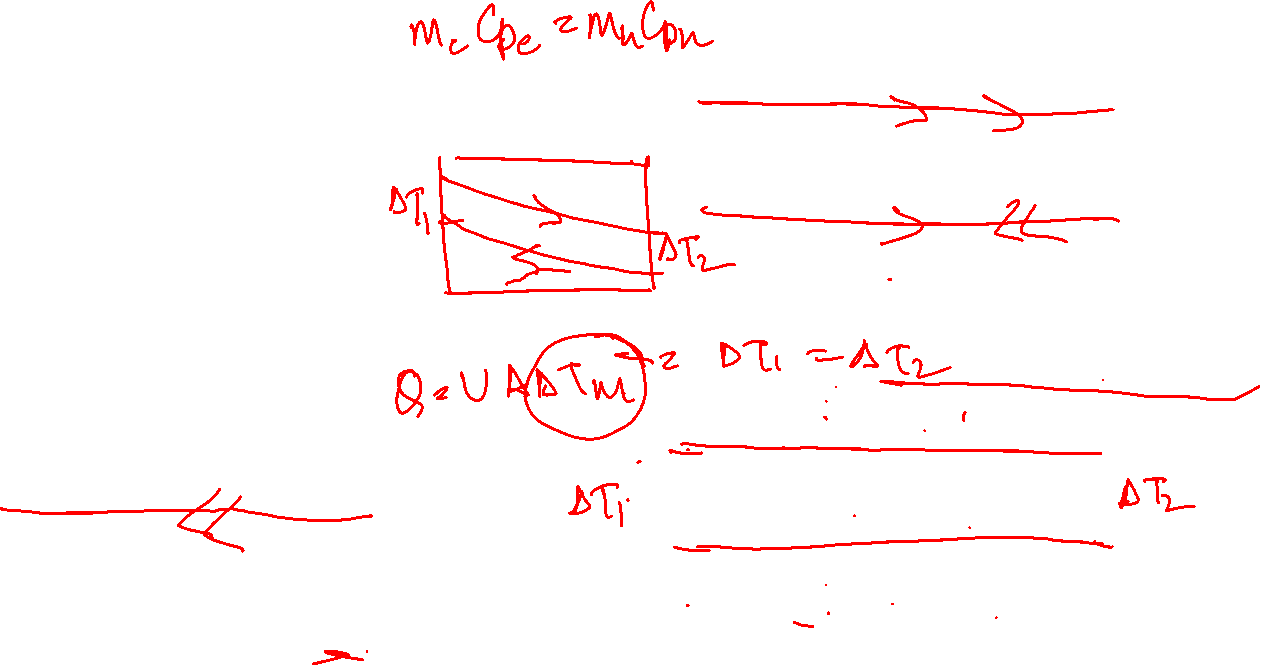 m_c C_pc = m_h C_ph
ΔT_1
ΔT_2
Q = U A ΔT_m = ΔT_1 = ΔT_2
ΔT_1
ΔT_2